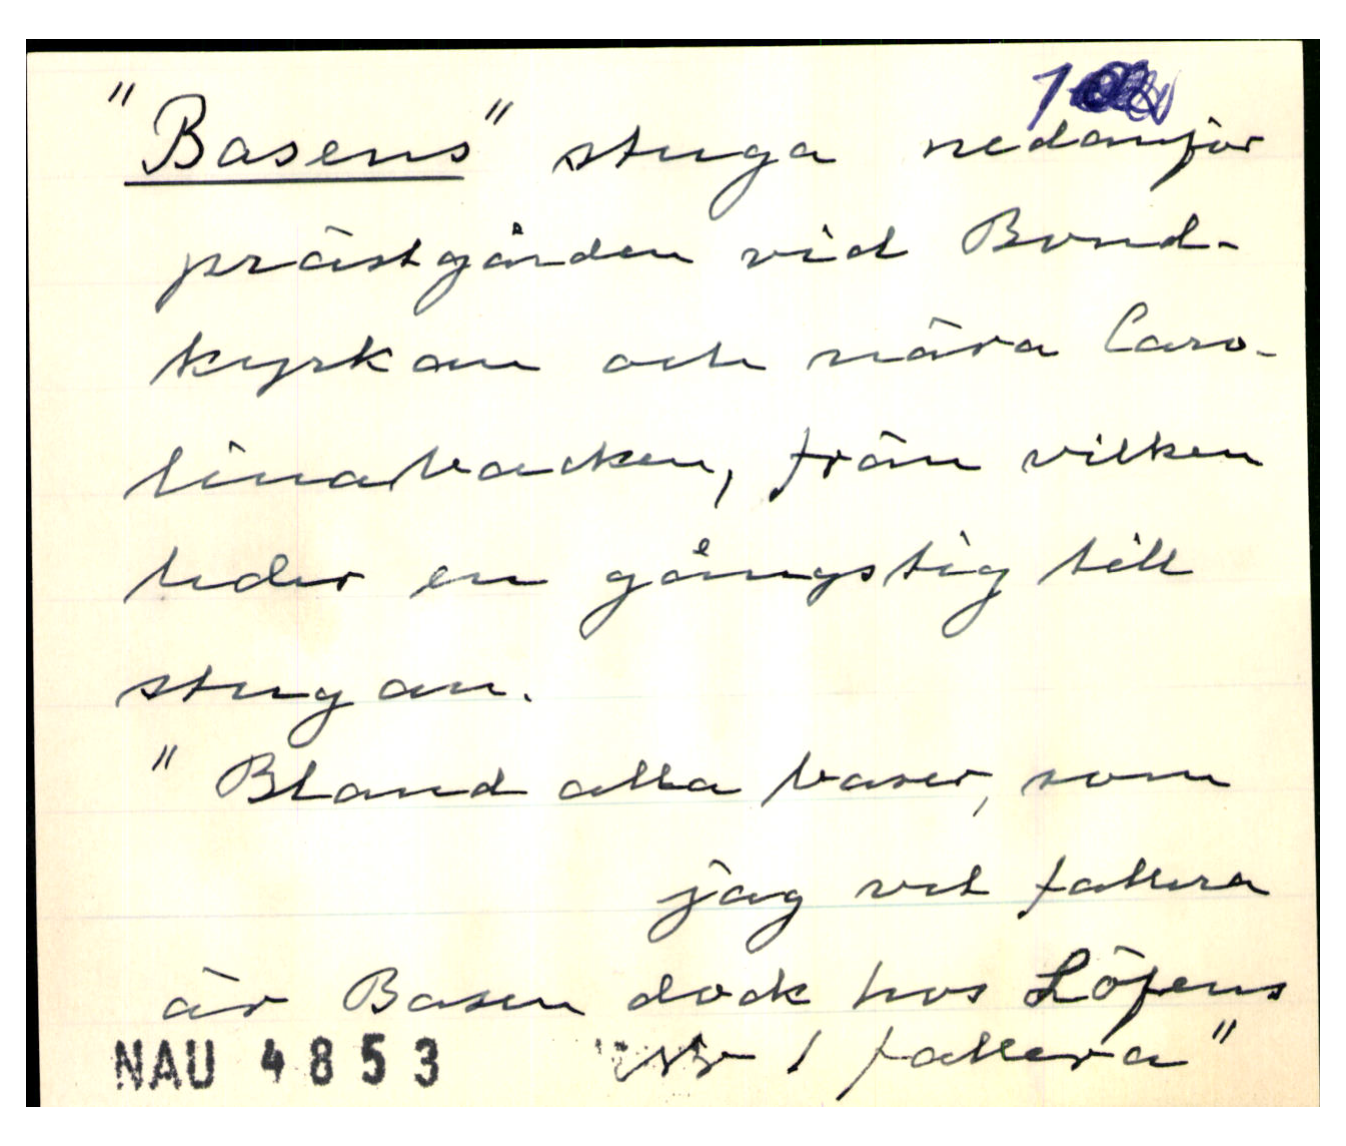 "Basens" stuga nedanför
prästgården vid Bond-
kyrkan och nära Caro-
linabacken, från vilken
leder en gångstig till
stugan.
"Bland alla baser, som
jag vet fallera
är Basen dock hos Löfens
nr 1 fallera"
NAU 4853